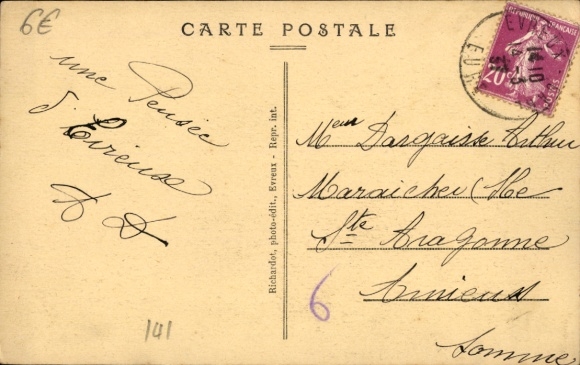 6€
CARTE POSTALE
une Pensée
d'Evreux
A D
141
Richardot, photo-édit., Evreux - Repr. int.
EVREUX
14 10
EURE
REPUBLIQUE FRANÇAISE
20c
POSTES
Meur Dargaisse Arthur
Maraicher
Ste Aragonne
Amiens
Somme
6